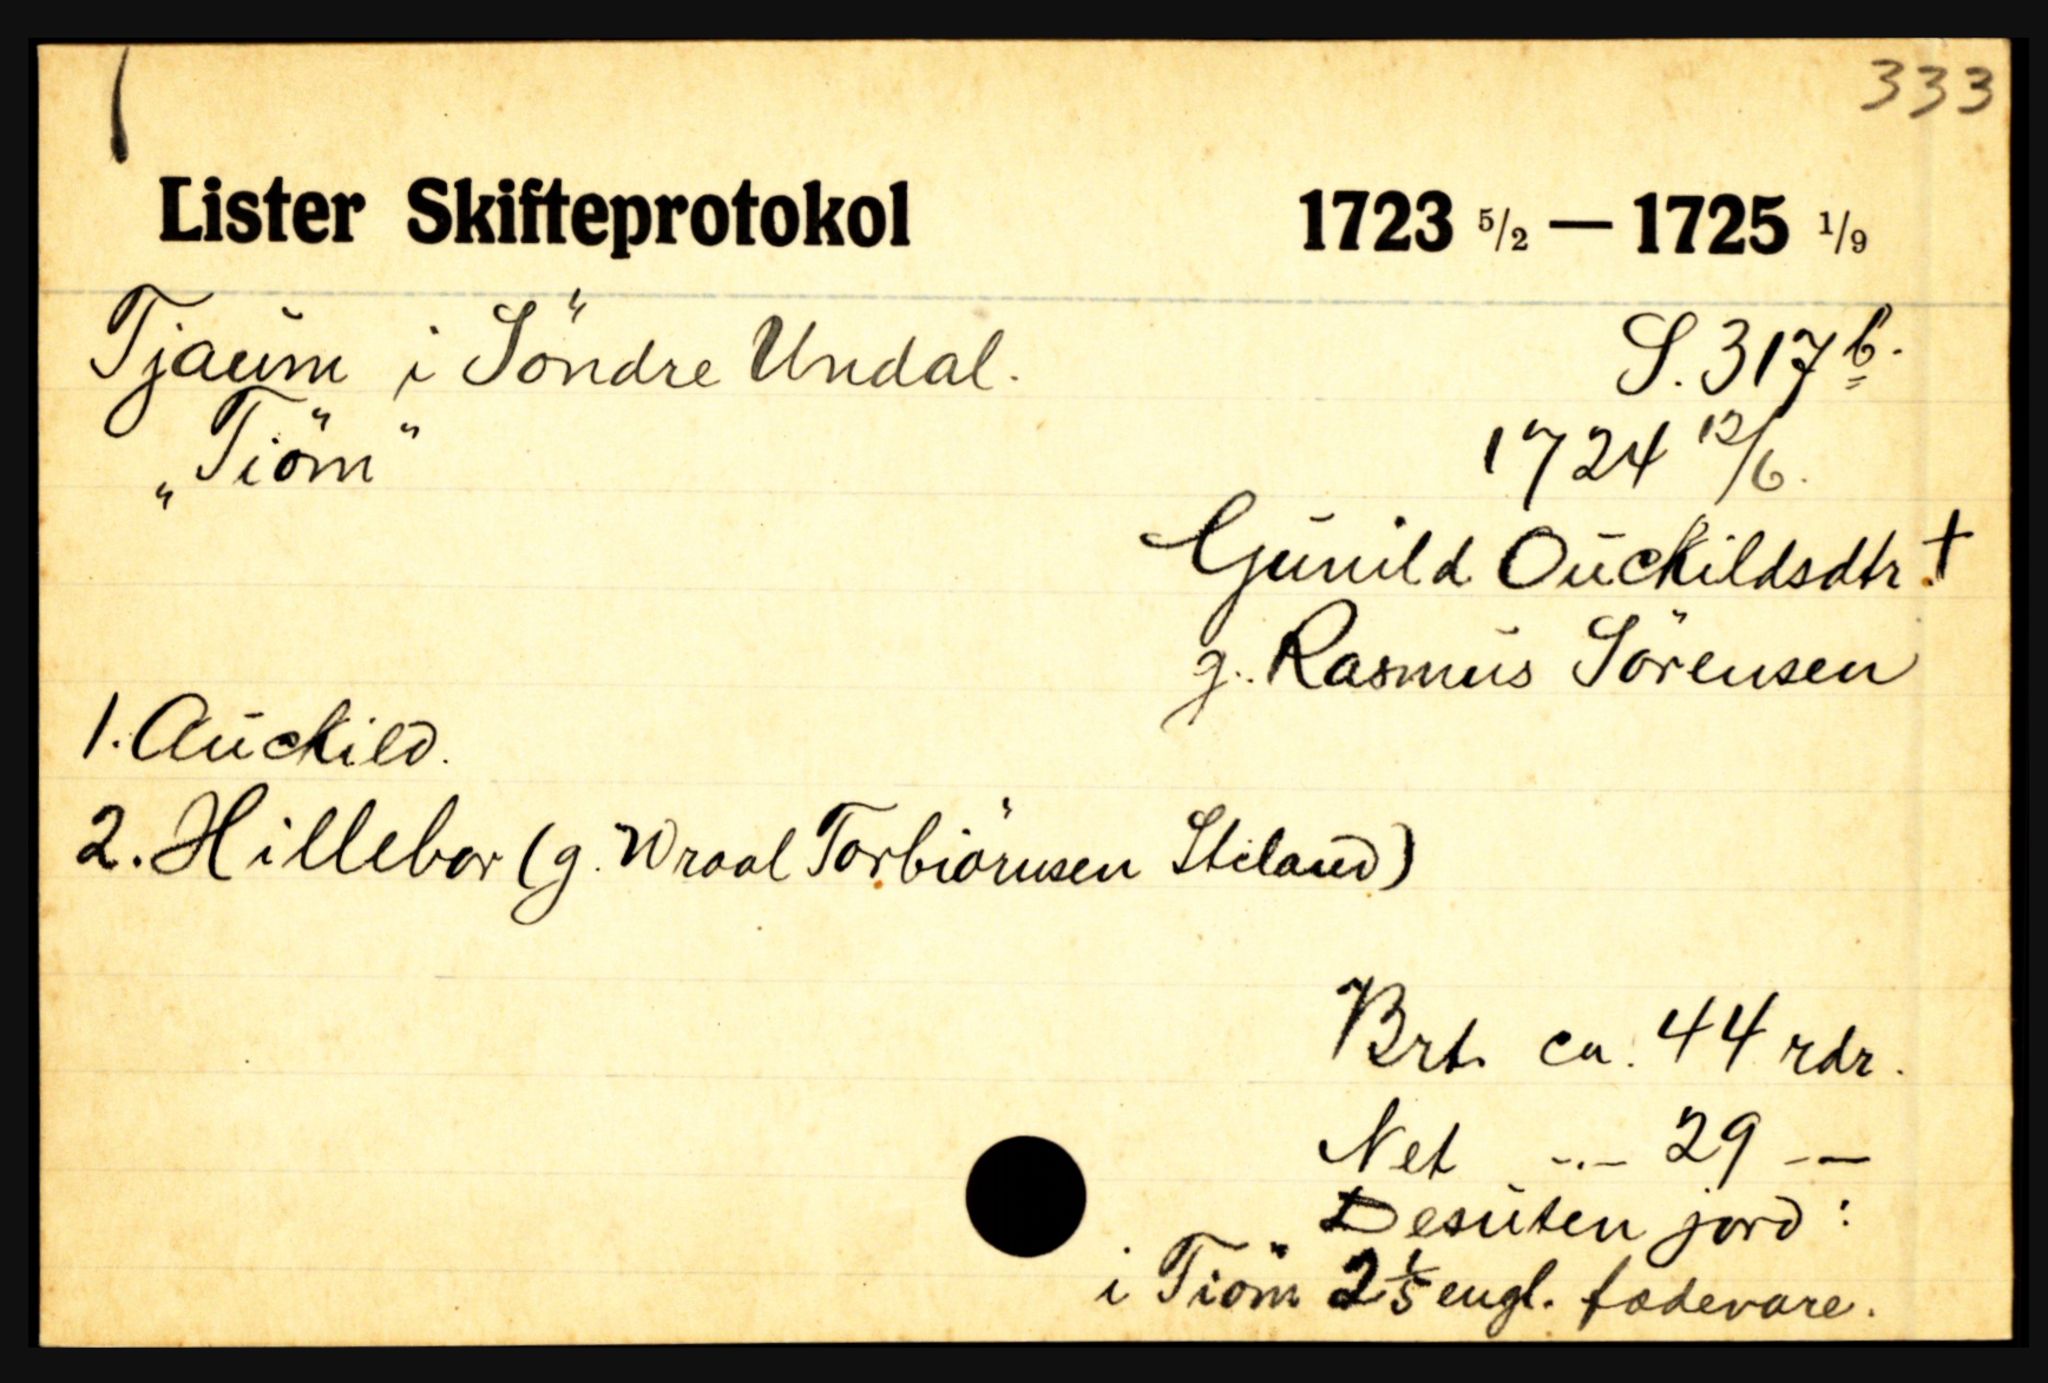 333
Lister Skifteprotokol 1723 5/2 — 1725 1/9
Tjaum i Söndre Undal. S. 317 b.
"Tiöm" 1724 12/6.
Gunild Ouckildsdtr. †
g. Rasmus Sörensen
1. Auckild.
2. Hillebor (g. Wraal Torbiörnsen Stiland)
Brt. ca. 44 rdr.
Net -"- 29 —
Desuten jord:
i Tiöm 2 1/5 engl. fodevare.